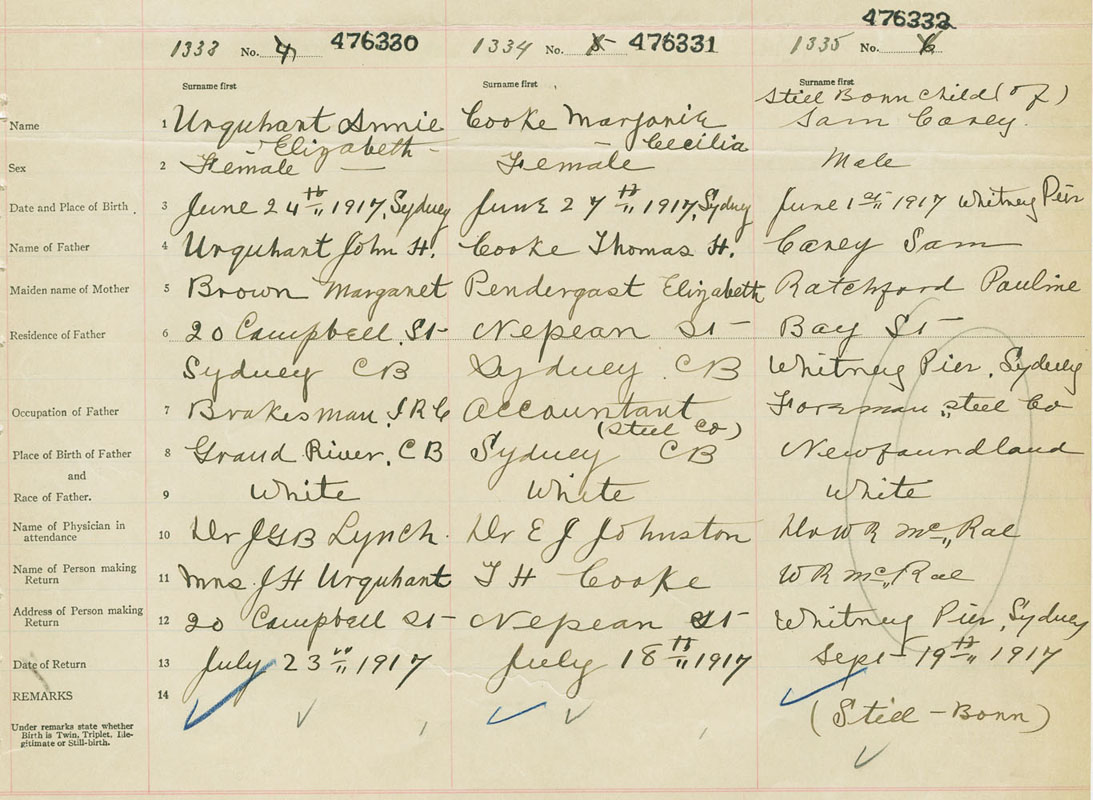 476332
1333 No. 4 476330 1334 No. 5 476331 1335 No. 6
Surname first Surname first Surname first
Still Born Child (of)
Name 1 Urquhart Annie Cooke Marjorie Sam Carey.
Elizabeth Cecilia
Sex 2 Female Female Male
Date and Place of Birth. 3 June 24th 1917, Sydney June 27th 1917, Sydney June 1st 1917 Whitney Pier
Name of Father 4 Urquhart John H. Cooke Thomas H. Carey Sam
Maiden name of Mother 5 Brown Margaret Pendergast Elizabeth Ratchford Pauline
Residence of Father 6 20 Campbell St Nepean St Bay St
Sydney CB Sydney CB Whitney Pier, Sydney
Occupation of Father 7 Brakesman, I R C Accountant Foreman Steel Co
(Steel Co)
Place of Birth of Father 8 Grand River, CB Sydney CB Newfoundland
and
Race of Father. 9 White White White
Name of Physician in attendance 10 Dr JGB Lynch. Dr E J Johnston Dr W R McRae
Name of Person making Return 11 Mrs J H Urquhart T H Cooke W R McRae
Address of Person making Return 12 20 Campbell St Nepean St Whitney Pier, Sydney
Date of Return 13 July 23rd 1917 July 18th 1917 Sept 19th 1917
REMARKS 14
(Still-Born)
Under remarks state whether
Birth is Twin, Triplet, Ille-
gitimate or Still-birth.